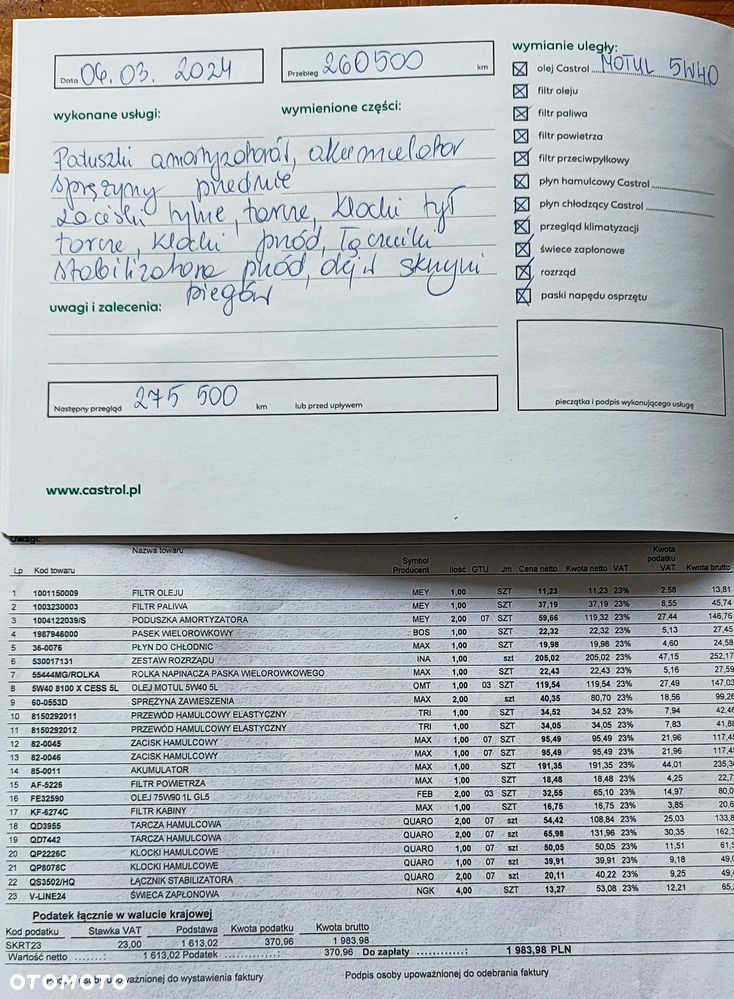 Data 06.03. 2024
Przebieg 260500 km
wymianie uległy:
olej Castrol MOTUL 5W40
filtr oleju
filtr paliwa
filtr powietrza
filtr przeciwpyłkowy
płyn hamulcowy Castrol
płyn chłodzący Castrol
przegląd klimatyzacji
świece zapłonowe
rozrząd
paski napędu osprzętu
wykonane usługi:
wymienione części:
Poduszki amortyzatorów, akumulator
sprężyny przednie
zaciski tylne, tarcze, klocki tył
tarcze, klocki przód, łączniki
stabilizatora przód, olej w skrzyni
biegów
uwagi i zalecenia:
Następny przegląd 275 500 km lub przed upływem
pieczątka i podpis wykonującego usługę
www.castrol.pl
Uwagi:
Lp Kod towaru Nazwa towaru Symbol Producent Ilość GTU Jm Cena netto Kwota netto VAT Kwota podatku VAT Kwota brutto
1 1001150009 FILTR OLEJU MEY 1,00 SZT 11,23 11,23 23% 2,58 13,81
2 1003230003 FILTR PALIWA MEY 1,00 SZT 37,19 37,19 23% 8,55 45,74
3 1004122039/S PODUSZKA AMORTYZATORA MEY 2,00 07 SZT 59,66 119,32 23% 27,44 146,76
4 1987946000 PASEK WIELOROWKOWY BOS 1,00 SZT 22,32 22,32 23% 5,13 27,45
5 36-0076 PŁYN DO CHŁODNIC MAX 1,00 SZT 19,98 19,98 23% 4,60 24,58
6 530017131 ZESTAW ROZRZĄDU INA 1,00 szt 205,02 205,02 23% 47,15 252,17
7 55444MG/ROLKA ROLKA NAPINACZA PASKA WIELOROWKOWEGO MAX 1,00 SZT 22,43 22,43 23% 5,16 27,59
8 5W40 8100 X CESS 5L OLEJ MOTUL 5W40 5L OMT 1,00 03 SZT 119,54 119,54 23% 27,49 147,03
9 60-0553D SPRĘŻYNA ZAWIESZENIA MAX 2,00 szt 40,35 80,70 23% 18,56 99,26
10 8150292011 PRZEWÓD HAMULCOWY ELASTYCZNY TRI 1,00 SZT 34,52 34,52 23% 7,94 42,46
11 8150292012 PRZEWÓD HAMULCOWY ELASTYCZNY TRI 1,00 SZT 34,05 34,05 23% 7,83 41,88
12 82-0045 ZACISK HAMULCOWY MAX 1,00 07 SZT 95,49 95,49 23% 21,96 117,45
13 82-0046 ZACISK HAMULCOWY MAX 1,00 07 SZT 95,49 95,49 23% 21,96 117,45
14 85-0011 AKUMULATOR MAX 1,00 SZT 191,35 191,35 23% 44,01 235,36
15 AF-5226 FILTR POWIETRZA MAX 1,00 SZT 18,48 18,48 23% 4,25 22,7
16 FE32590 OLEJ 75W90 1L GL5 FEB 2,00 03 SZT 32,55 65,10 23% 14,97 80,0
17 KF-6274C FILTR KABINY MAX 1,00 SZT 16,75 16,75 23% 3,85 20,6
18 QD3955 TARCZA HAMULCOWA QUARO 2,00 07 szt 54,42 108,84 23% 25,03 133,8
19 QD7442 TARCZA HAMULCOWA QUARO 2,00 07 szt 65,98 131,96 23% 30,35 162,3
20 QP2226C KLOCKI HAMULCOWE QUARO 1,00 07 szt 50,05 50,05 23% 11,51 61,5
21 QP8078C KLOCKI HAMULCOWE QUARO 1,00 07 szt 39,91 39,91 23% 9,18 49,0
22 QS3502/HQ ŁĄCZNIK STABILIZATORA QUARO 2,00 07 szt 20,11 40,22 23% 9,25 49,4
23 V-LINE24 ŚWIECA ZAPŁONOWA NGK 4,00 SZT 13,27 53,08 23% 12,21 65,
Podatek łącznie w walucie krajowej
Kod podatku Stawka VAT Podstawa Kwota podatku Kwota brutto
SKRT23 23,00 1 613,02 370,96 1 983,98
Wartość netto .......: 1 613,02 Podatek ..............: 370,96 Do zapłaty ............: 1 983,98 PLN
OTOMOTO
Podpis osoby upoważnionej do wystawienia faktury
Podpis osoby upoważnionej do odebrania faktury